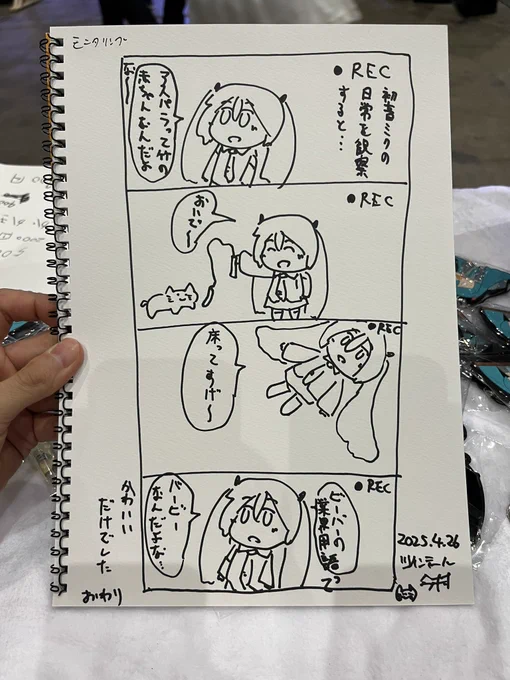 モニタリング
●REC
初音ミクの
日常を観察
すると…
アスパラって竹の
赤ちゃんなんだよ
な〜
●REC
おいで〜
●REC
床ってすげ〜
●REC
ビーバーの
業界用語って
バービー
なんだよな…
かわいい
だけでした
おわり
2025.4.26
ツインテール